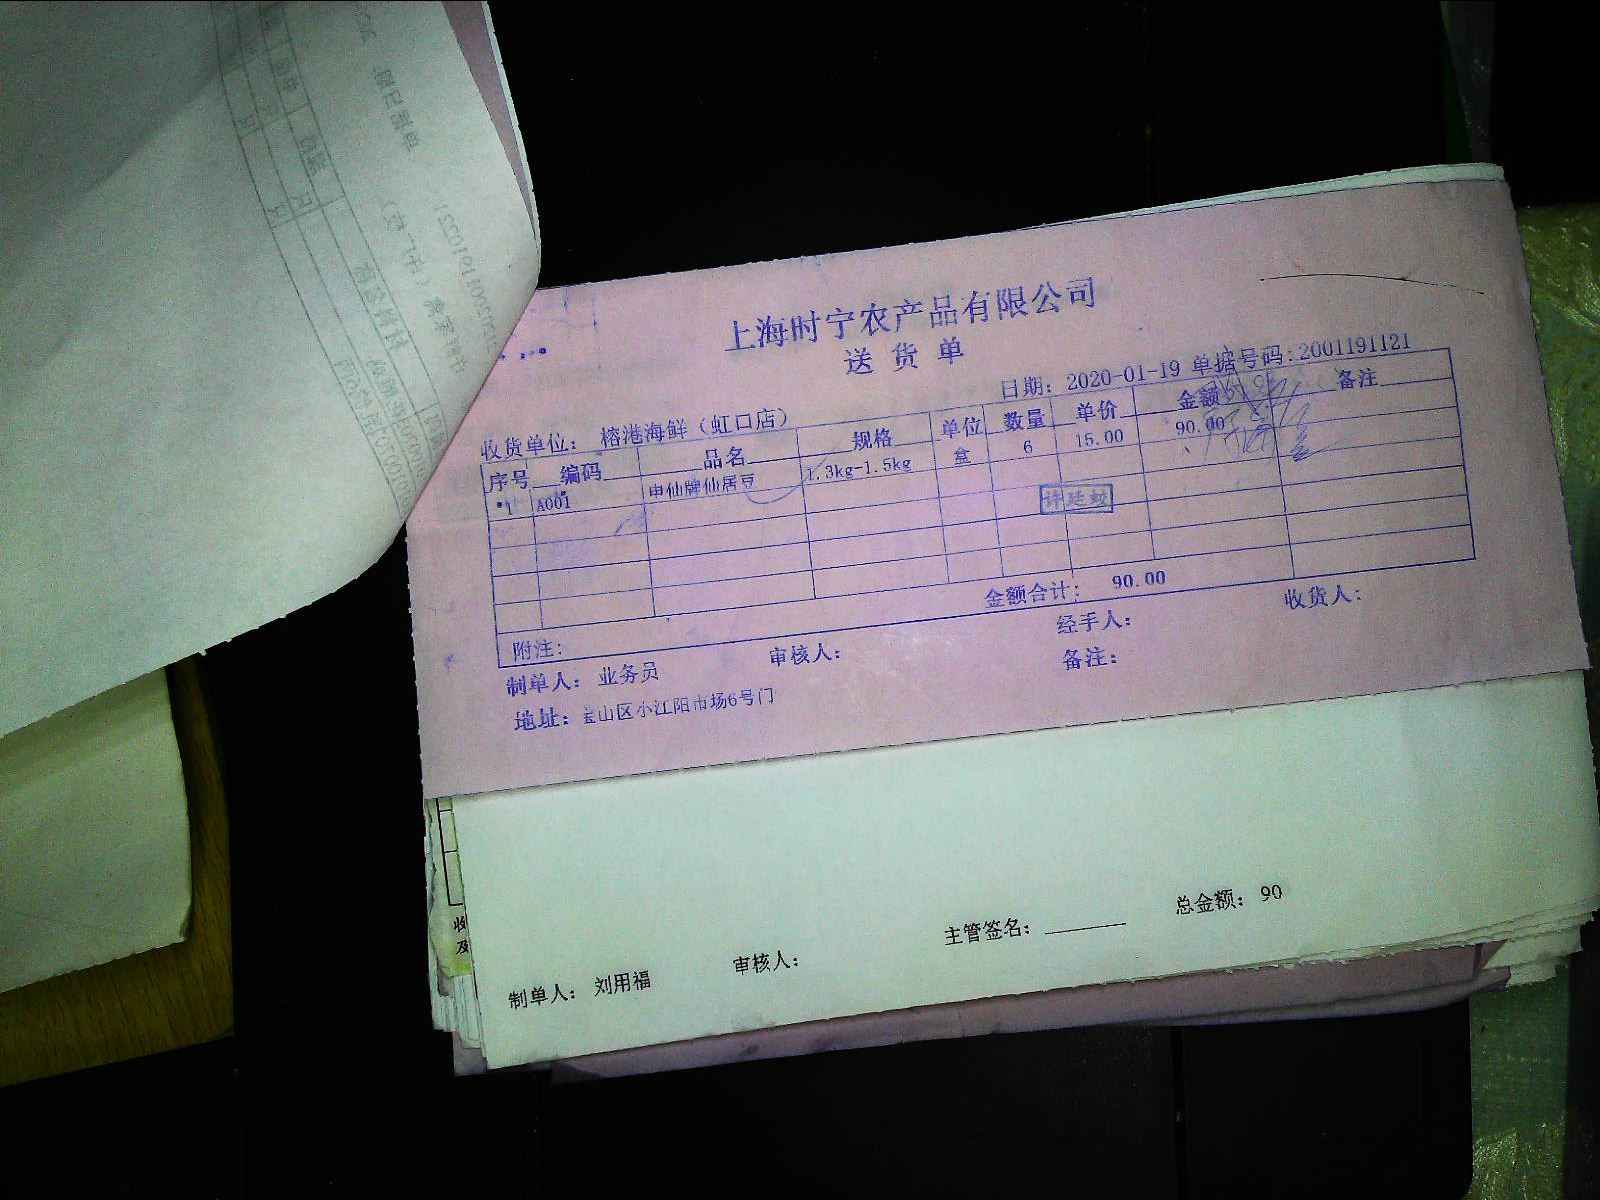 上海时宁农产品有限公司
送货单
日期: 2020-01-19 单据号码:2001191121
收货单位: 榕港海鲜(虹口店)
序号 编码 品名 规格 单位 数量 单价 金额 备注
1 A001 申仙牌仙居豆 1.3kg-1.5kg 盒 6 15.00 90.00
许廷蛟
金额合计: 90.00
附注:
制单人: 业务员 审核人: 经手人: 收货人:
地址: 宝山区小江阳市场6号门 备注:
总金额: 90
制单人: 刘用福 审核人: 主管签名:
收
及